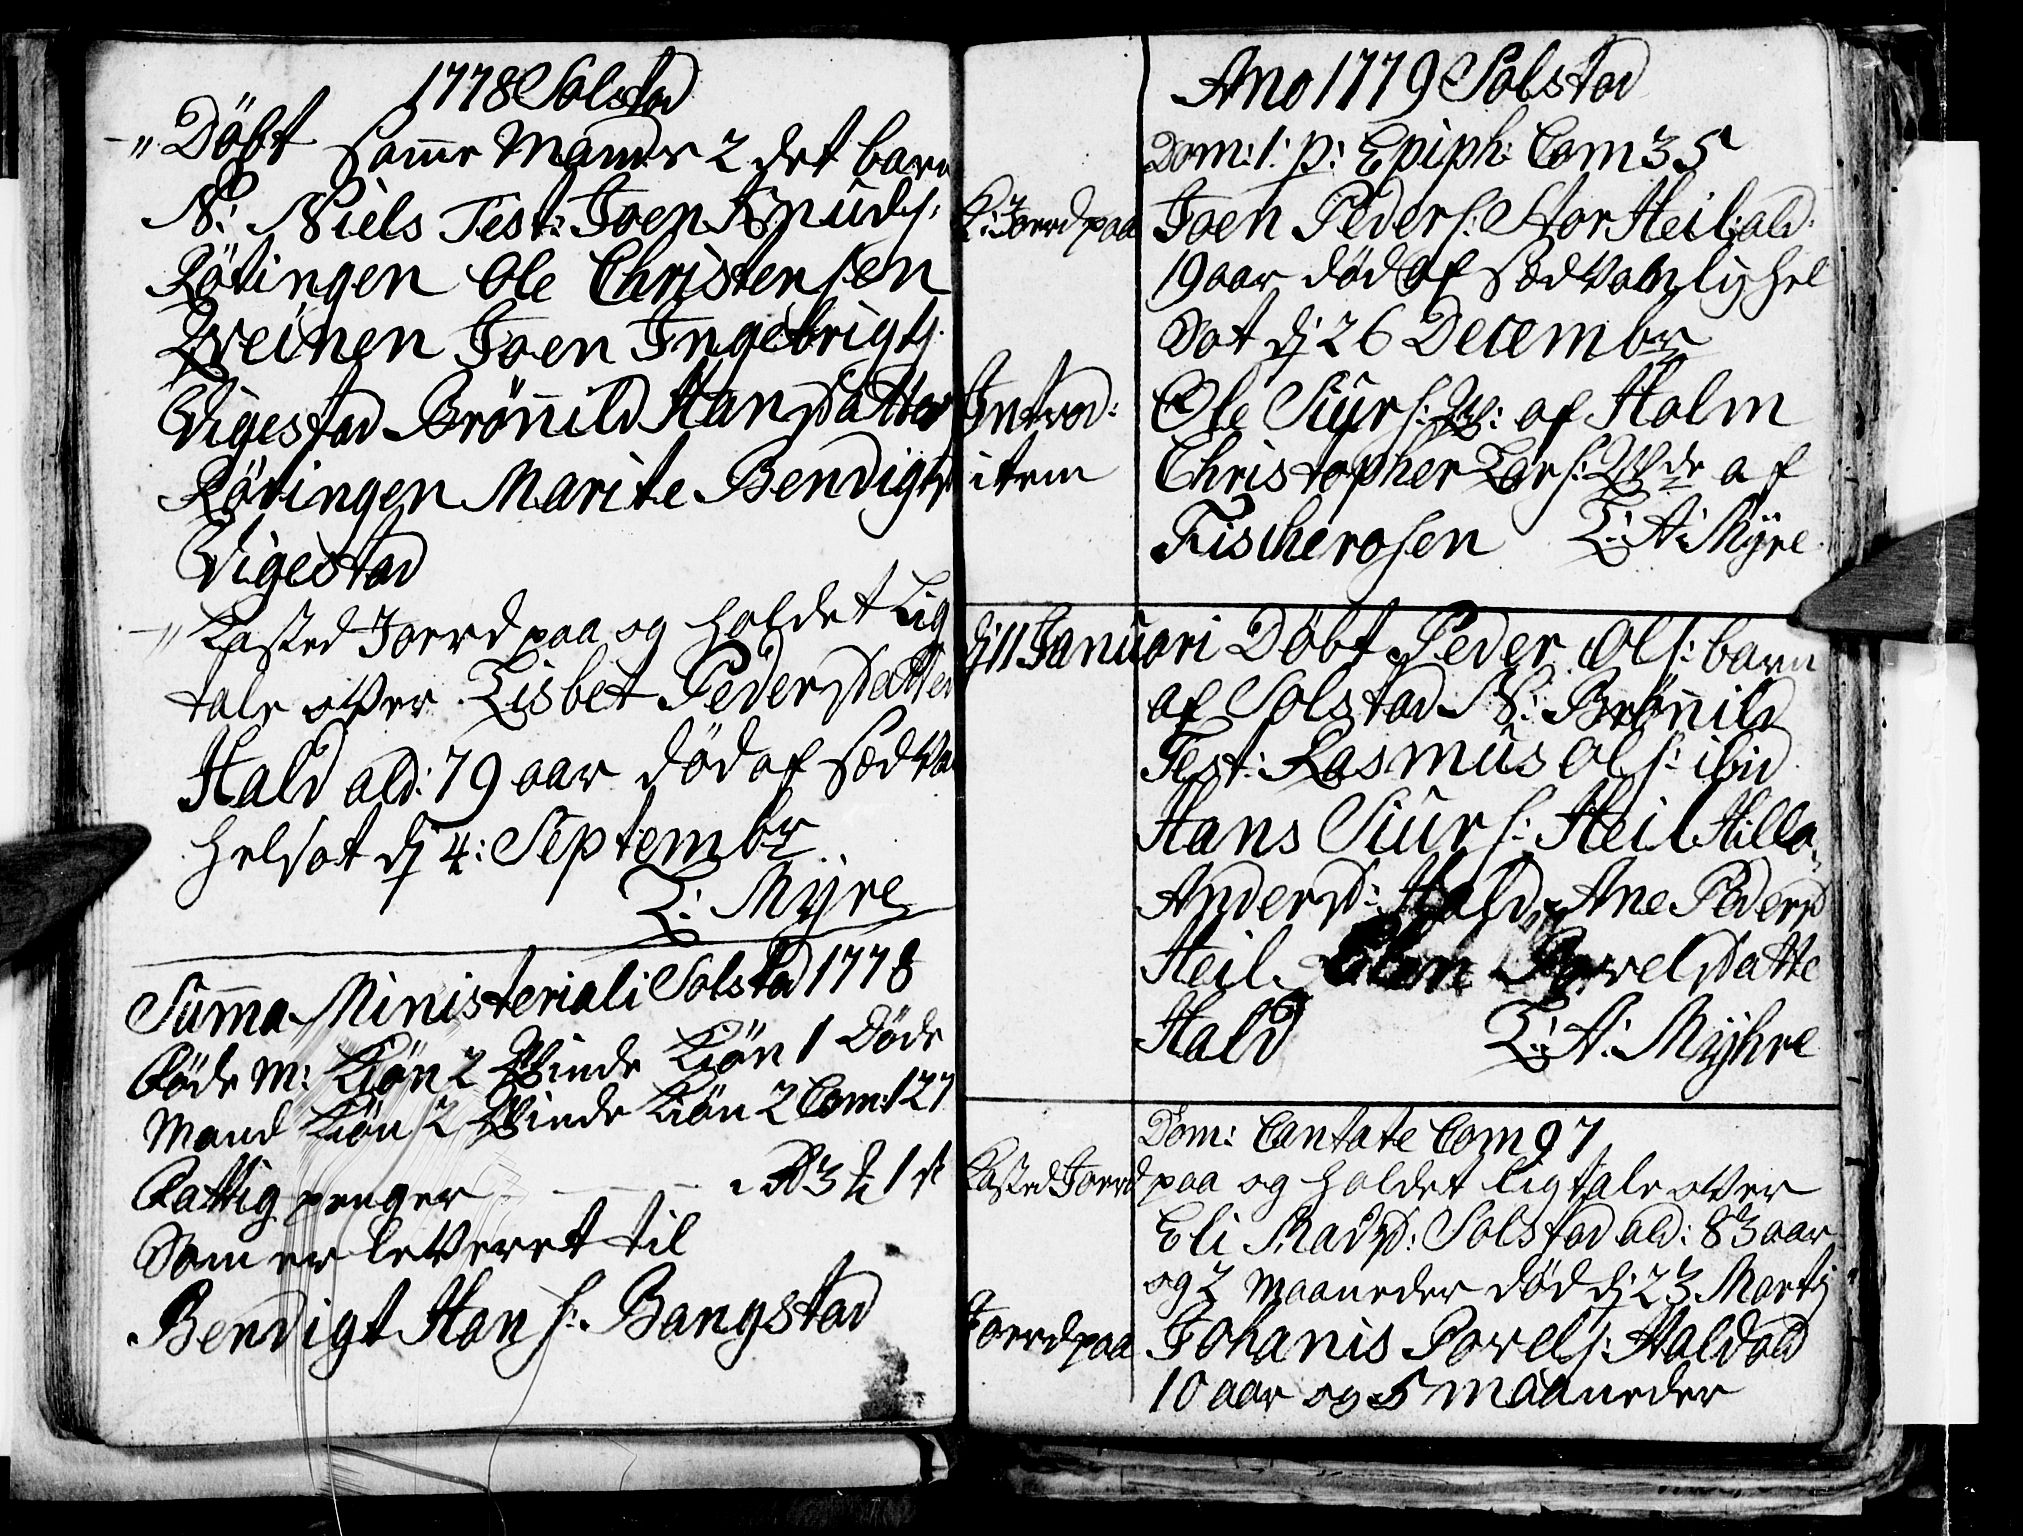 1778 Solstad
-" Döbt samme Mands 2 det barn
N: Niels Test: Joen Knuds:
Rötingen Ole Christensen
Qveinen Joen Ingebrigts:
Vigestad Brönnild Hansdatter
Rötingen Marite Bendigts
Vigestad
-" Kasted Jorrd paa og holdet Lig
tale over Lisbet Pedersdatter
Hald ald: 79 aar död af sedva
helsot dj 4: Septembr
L: Myre
Summa Ministeriali Solstad 1778
Födde M: Kiön 2 Qvinde Kiön 1 Döde
Mand Kiön 2 Qvinde Kiön 2 Com: 127
Fattig penger - - - Rd 3 1
Som er leveret til
Bendigt Hans: Bangstad
Ano 1779 Solstad
Dom: 1: p: Epiph: Com 35
K: Jorrd paa Joen Peders: Stor Heil: ald:
19 aar död af sedvanlig hel
sot dj 26 Decembr
Introd: Ole Siurs: Q: af Holm
item Christopher Lars: Qvde af
Fischerosen L: A: Myre
dj 11 Januari Döbt Peder Ols: barn
af Solstad N: Brönnild
Test: Rasmus Ols: ibid
Hans Siurs: Heil Hilla
Andersd: Hald Ane Pedersd
Heil Elen Povelsdatte
Hald L: A: Myhre
Dom: Cantate Com 97
Kasted Jorrd paa og holdet ligtale over
Eli Madsd: Solstad ald: 83 aar
og 2 Maaneder död dj 23 Martj
Jorrd paa Johanis Povels: Hald ald
10 aar og 5 Maaneder